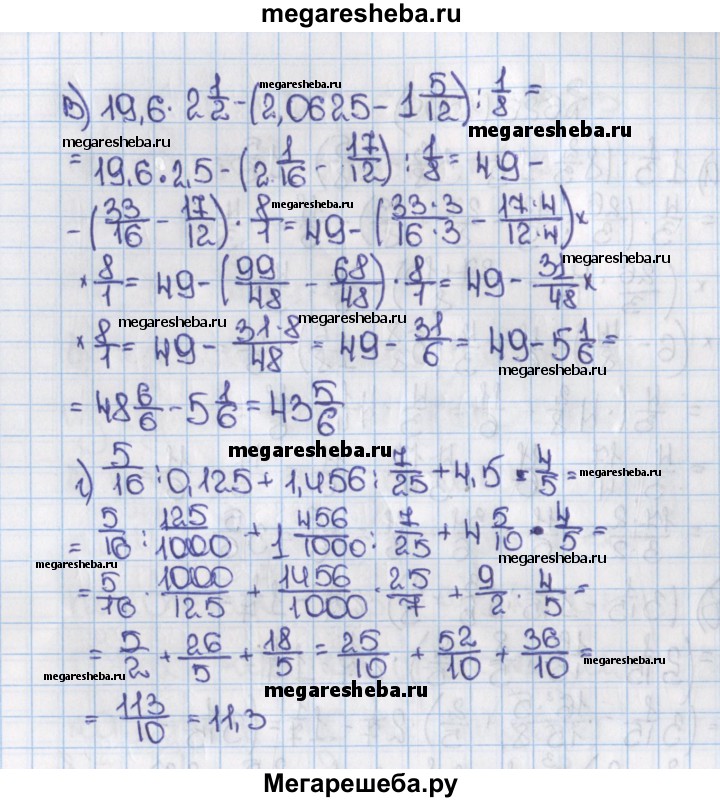 megaresheba.ru
megaresheba.ru
в) 19,6 · 2 1/2 - (2,0625 - 1 5/12) : 1/8 =
megaresheba.ru megaresheba.ru
= 19,6 · 2,5 - (2 1/16 - 17/12) : 1/8 = 49 -
megaresheba.ru
- (33/16 - 17/12) · 8/1 = 49 - (33·3/16·3 - 17·4/12·4) ×
megaresheba.ru
× 8/1 = 49 - (99/48 - 68/48) · 8/1 = 49 - 31/48 ×
megaresheba.ru megaresheba.ru
× 8/1 = 49 - 31·8/48 = 49 - 31/6 = 49 - 5 1/6 =
megaresheba.ru
= 48 6/6 - 5 1/6 = 43 5/6
megaresheba.ru
г) 5/16 : 0,125 + 1,456 : 7/25 + 4,5 · 4/5 =
megaresheba.ru
= 5/16 : 125/1000 + 1 456/1000 : 7/25 + 4 5/10 · 4/5 =
megaresheba.ru megaresheba.ru
= 5/16 · 1000/125 + 1456/1000 · 25/7 + 9/2 · 4/5 =
megaresheba.ru
= 5/2 + 26/5 + 18/5 = 25/10 + 52/10 + 36/10 =
megaresheba.ru
megaresheba.ru
= 113/10 = 11,3
Мегарешеба.ру